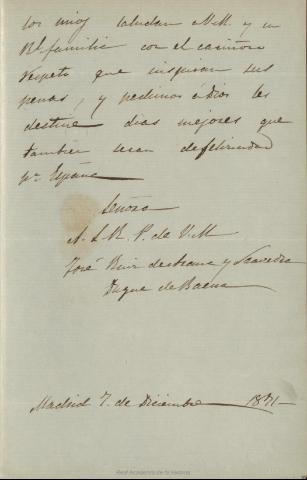 los mios saludan a V.M. y su
Rl. familia con el cariñoso
respeto que inspiran sus
penas, y pedimos á Dios les
destine dias mejores que
tambien seran de felicidad
pa. España
Señora
A. L. R. P. de V. M.
José Ruiz de Arana y Saavedra
Duque de Baena
Madrid 7. de Diciembre 1871-
Real Academia de la Historia